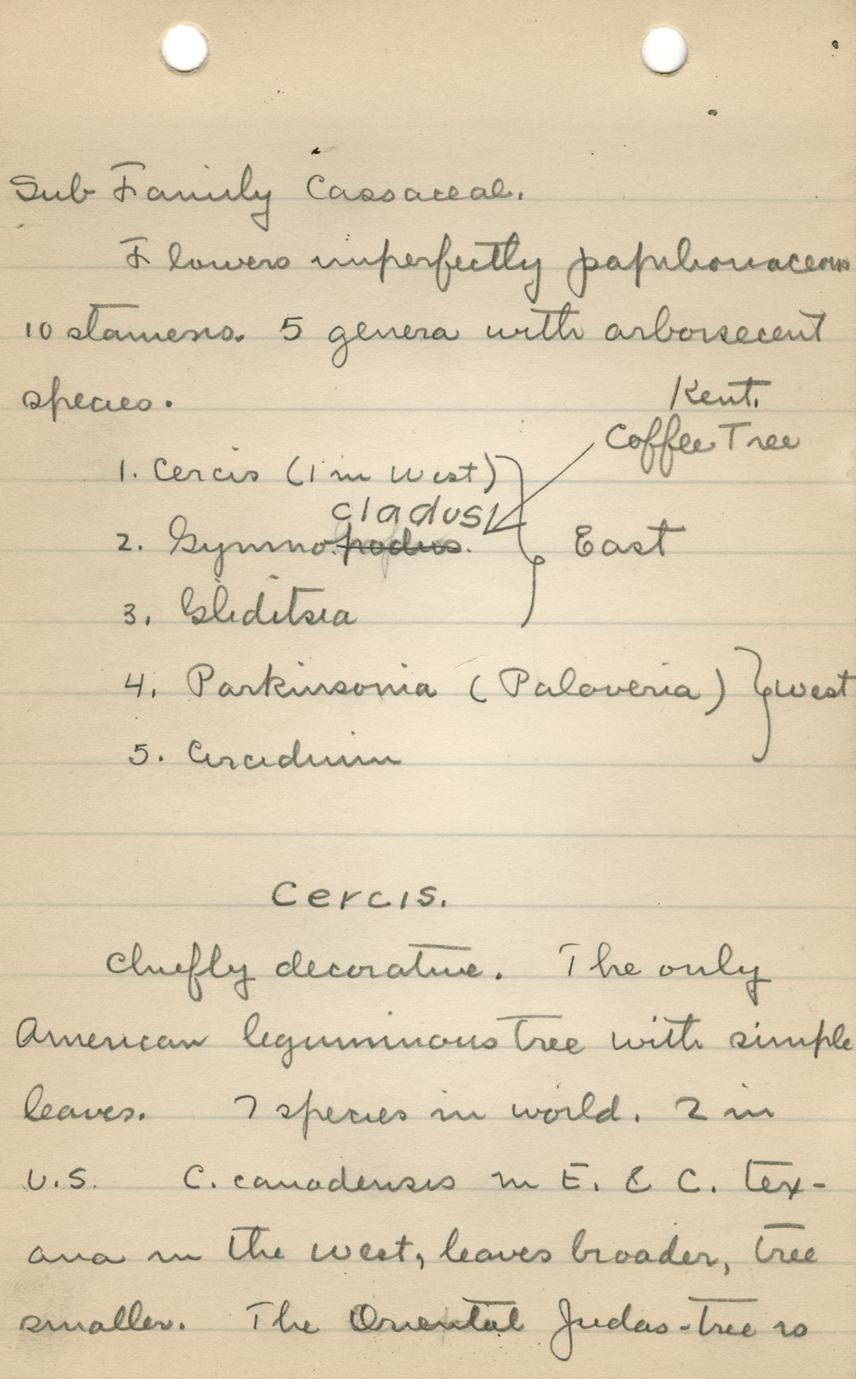 Sub Family Cassaceae.
Flowers imperfectly papilionaceous
10 stamens. 5 genera with arborsecent
species.
Kent.
Coffee Tree
1. Cercis (1 in West)
cladus
2. Gymnopodus. East
3. Gleditsia
4. Parkinsonia (Paloveria) West
5. Cercidium
Cercis.
Chiefly decorative. The only
American leguminous tree with simple
leaves. 7 species in world. 2 in
U.S. C. canadensis in E. & C. tex-
ana in the west, leaves broader, tree
smaller. The Oriental Judas-tree is